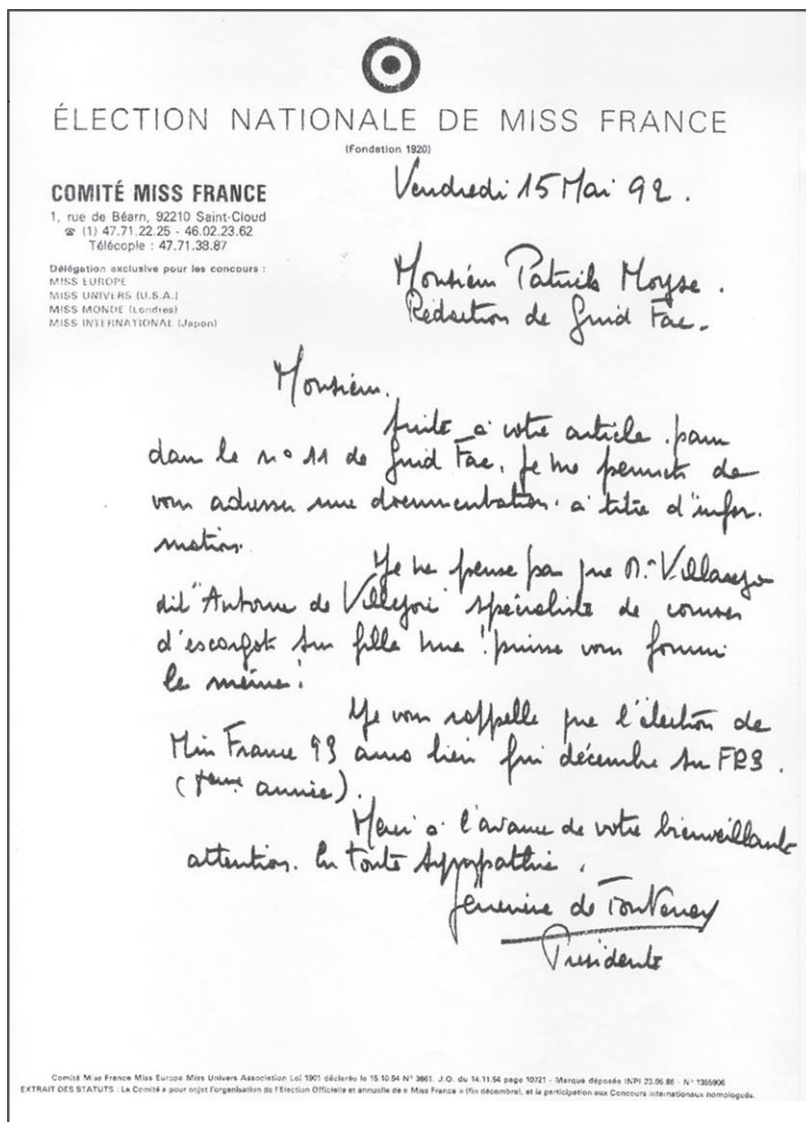 ÉLECTION NATIONALE DE MISS FRANCE
(Fondation 1920)
COMITÉ MISS FRANCE
1, rue de Béarn, 92210 Saint-Cloud
☎ (1) 47.71.22.25 - 46.02.23.62
Télécopie : 47.71.38.87
Délégation exclusive pour les concours :
MISS EUROPE
MISS UNIVERS (U.S.A.)
MISS MONDE (Londres)
MISS INTERNATIONAL (Japon)
Vendredi 15 Mai 92.
Monsieur Patrick Moyse.
Rédaction de Guid Fac.
Monsieur,
Suite à votre article paru
dans le n° 11 de Guid Fac, je me permets de
vous adresser une documentation à titre d'infor-
mation.
Je ne pense pas que Mr
dit "Antoine de " spécialiste de courses
d'escargots sur fille nue ! puisse vous fournir
la même !
Je vous rappelle que l'élection de
Miss France 93 aura lieu fin décembre sur FR3.
( année).
Merci à l'avance de votre bienveillante
attention. En toute sympathie,
Geneviève de Fontenay
Présidente
Comité Miss France Miss Europe Miss Univers Association Loi 1901 déclarée le 15.10.54 N° 3661. J.O. du 14.11.54 page 10721 - Marque déposée INPI 23.05.86 - N° 1355906
EXTRAIT DES STATUTS : Le Comité a pour objet l'organisation de l'Election Officielle et annuelle de « Miss France » (fin décembre), et la participation aux Concours internationaux homologués.